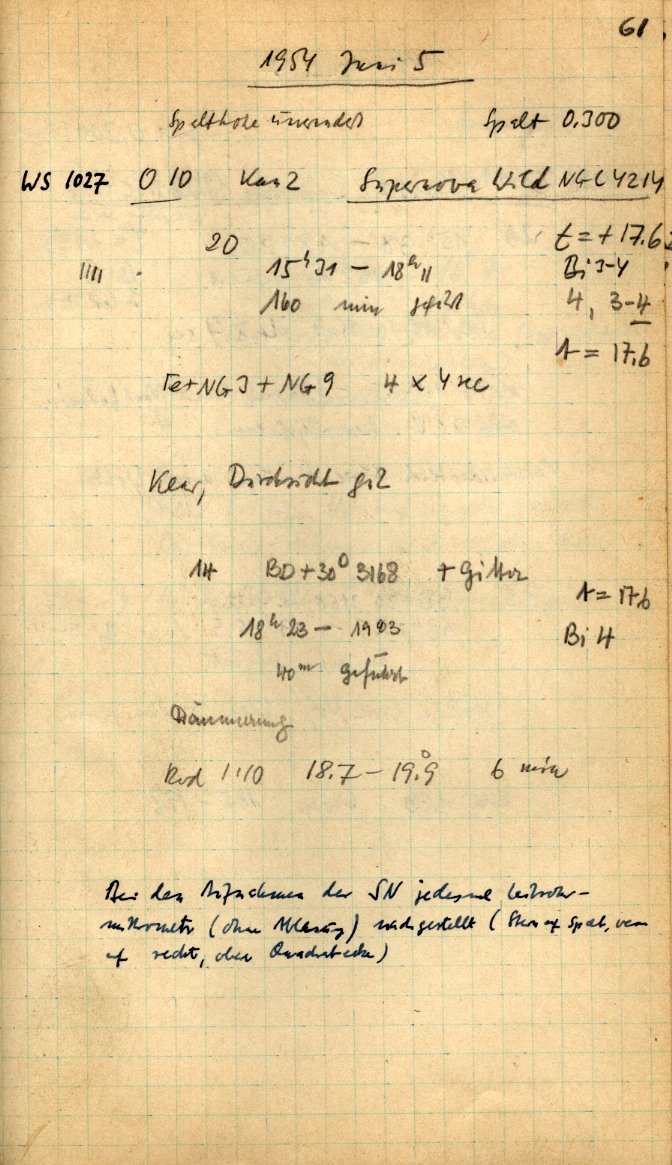 61.
1954 Juni 5
Spalthöhe unverändert Spalt 0.300
WS 1027 O 10 Kam 2 Supernova Wild NGC 4214
20 t = + 17.6
IIII 15h31 — 18h11 Bi 3-4
160 min geführt 4, 3-4
t = 17.6
Fe+NG3 + NG9 4 x 4 sec
Klar, Durchsicht gut
14 BD+30° 3168 + Gitter
t = 17.6
18h23 — 1903
Bi 4
40m geführt
Dämmerung
1:10 18.7 — 19.9 6 min
Bei den Aufnahmen der SN jedesmal Leitrohr-
mikrometer (ohne Ablesung) nachgestellt (Stern auf Spalt,
auf rechte, obere Quadratecke)